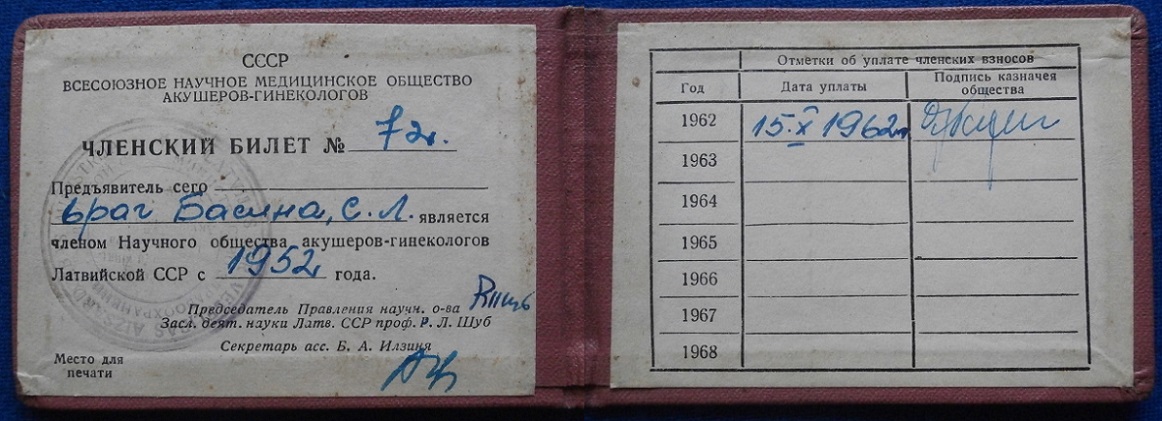 СССР
ВСЕСОЮЗНОЕ НАУЧНОЕ МЕДИЦИНСКОЕ ОБЩЕСТВО
АКУШЕРОВ-ГИНЕКОЛОГОВ
ЧЛЕНСКИЙ БИЛЕТ №
Предъявитель сего
врач Басина, С. Л. является
членом Научного общества акушеров-гинекологов
Латвийской ССР с 1952 года.
Председатель Правления научн. о-ва
Засл. деят. науки Латв. ССР проф. Р. Л. Шуб
Секретарь асс. Б. А. Илзиня
Место для
печати
Отметки об уплате членских взносов
Год Дата уплаты Подпись казначея
общества
1962 15.X 1962г.
1963
1964
1965
1966
1967
1968